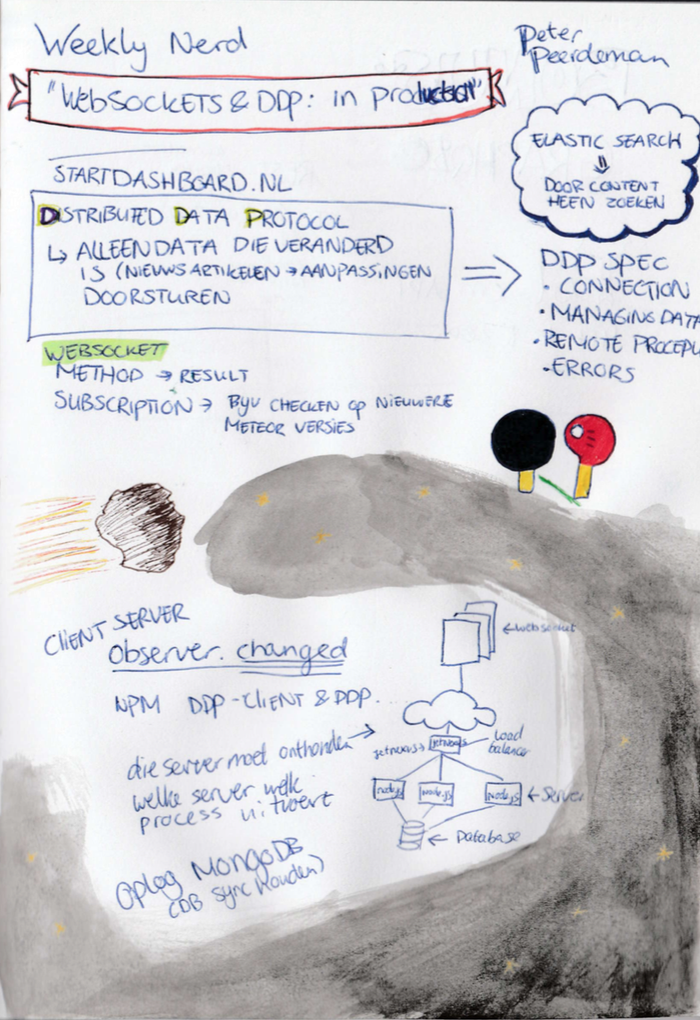 Weekly Nerd
Peter
Peerdeman
"WEBSOCKETS & DDP: in production"
ELASTIC SEARCH
⇓
DOOR CONTENT
HEEN ZOEKEN
STARTDASHBOARD.NL
DISTRIBUTED DATA PROTOCOL
↳ ALLEEN DATA DIE VERANDERD
IS (NIEUWSARTIKELEN → AANPASSINGEN
DOORSTUREN
⇒
DDP SPEC
• CONNECTION
• MANAGING DATA
• REMOTE PROCEDU
• ERRORS
WEBSOCKET
METHOD → RESULT
SUBSCRIPTION → BIJV CHECKEN OP NIEUWERE
METEOR VERSIES
CLIENT SERVER
Observer.changed
NPM DDP-CLIENT & DDP.
← Websocket
die server moet onthouden →
welke server welk
process uitvoert
Load
balancer
node.js
node.js
node.js
← Server
← Database
Oplog MongoDB
(DB sync houden)